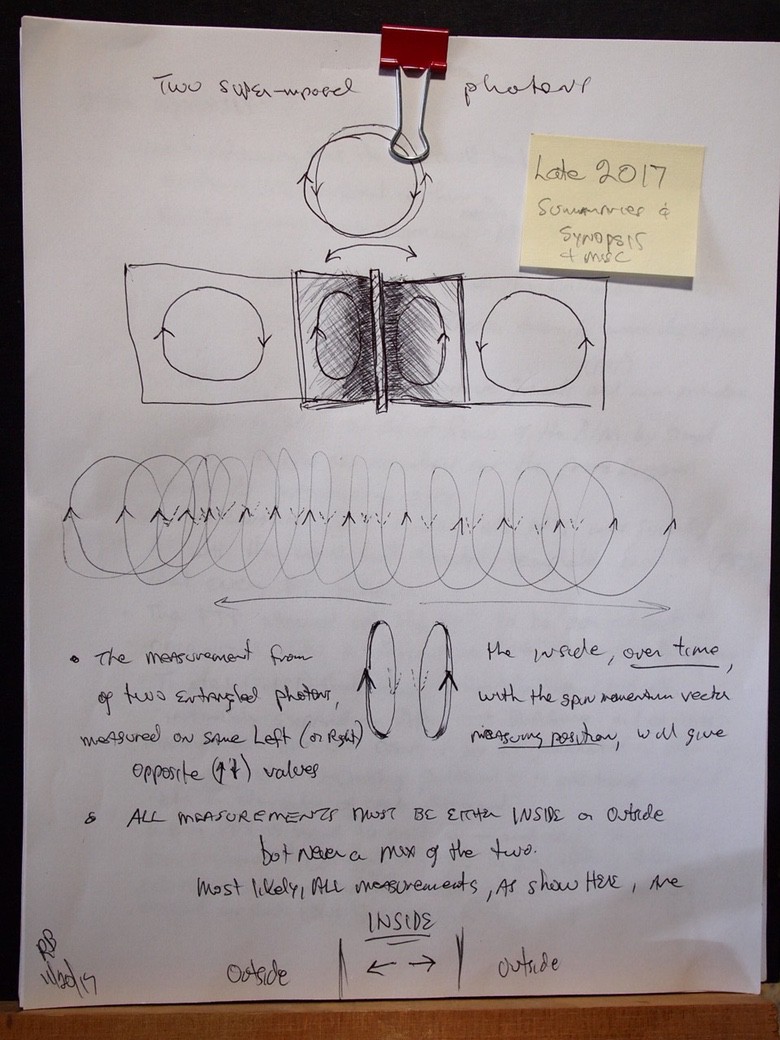 Two super-mposed photons
Late 2017
Summaries &
Synopsis
+ misc
• The measurement from the inside, over time,
of two entangled photons, with the spin momentum vector
measured on same Left (or Right) measuring position, will give
opposite (↑↓) values
& ALL MEASUREMENTS MUST BE EITHER INSIDE or Outside
but never a mix of the two.
Most likely, ALL measurements, As show HERE, are
INSIDE
Outside ← → Outside
RB
11/20/17